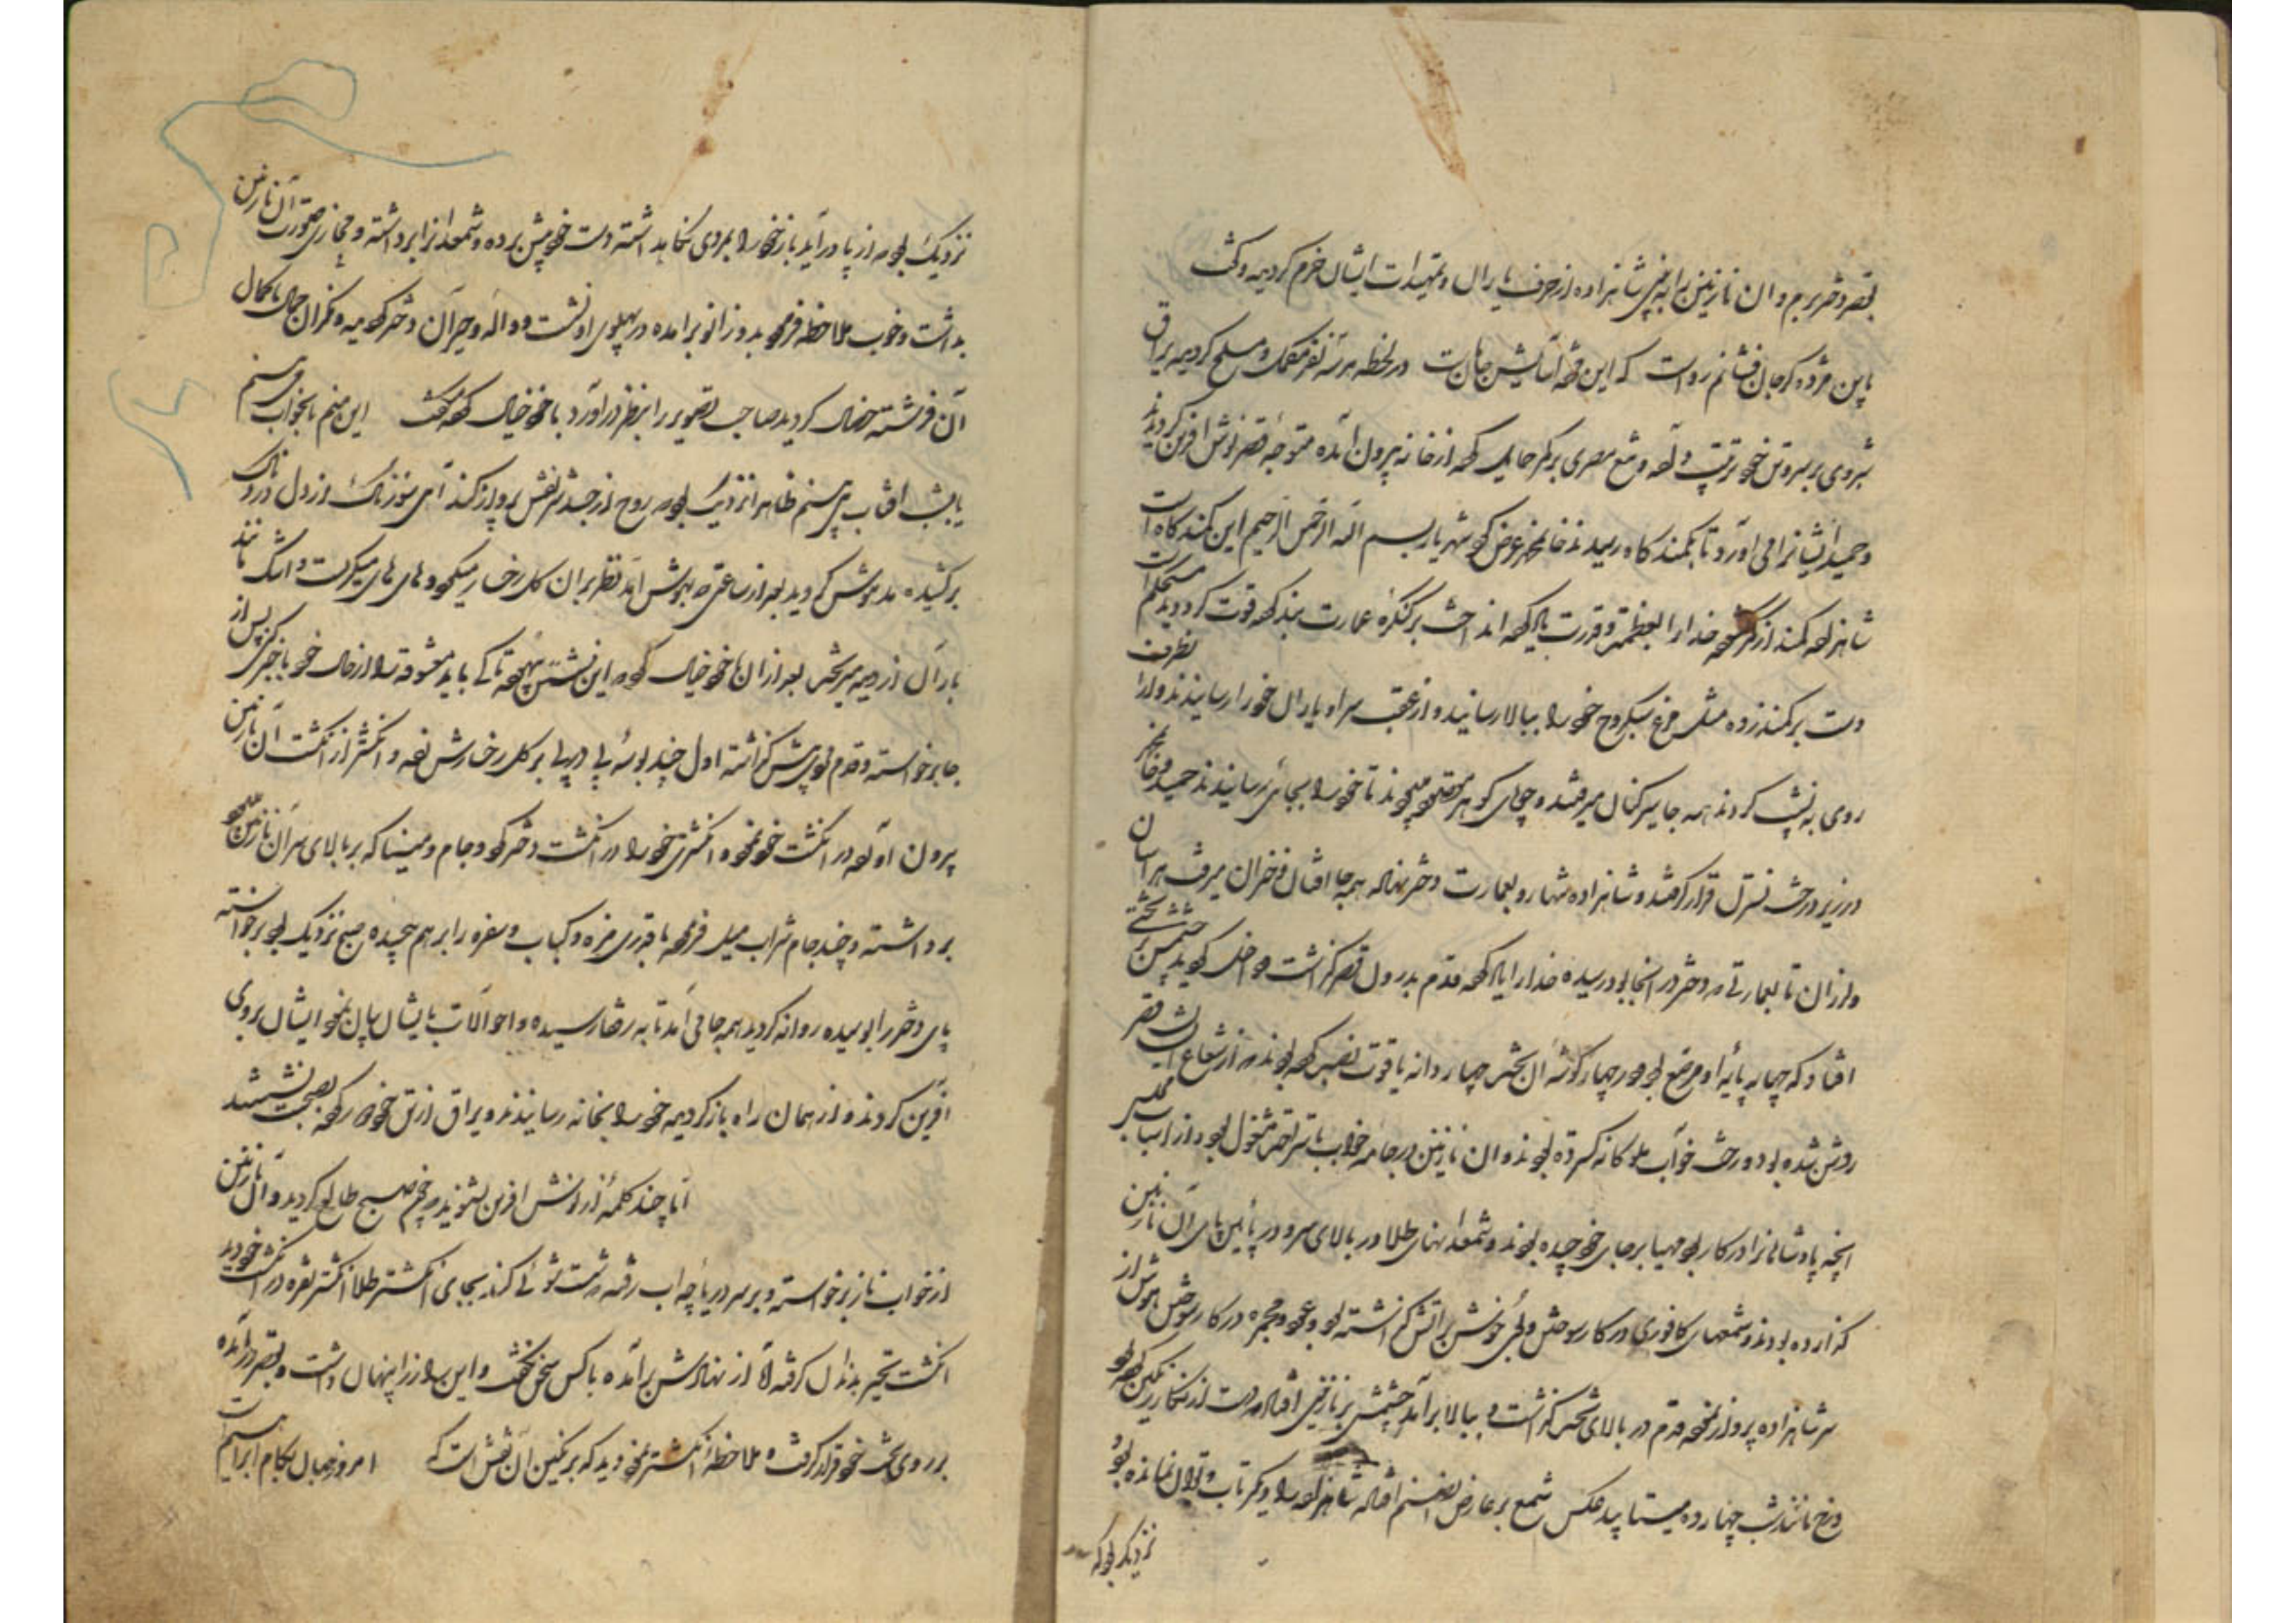 بقصر دختر بریم و ان نازنین را به بینی شاهزاده از حرف یاران و تمهیدات ایشان خرم گردیده و گفت
باین مژده گر جان فشانم رواست که این مژده آسایش جان ماست در لحظه هر سه نفر مکمل و مسلح گردیده یراق
شبروی بر سر و تن خود ترتیب داده و تیغ مصری بر کمر حمایل کرده از خانه بیرون آمده متوجه قصر نوش آفرین گردیدند
و حمید ایشانرا می آورد تا بکمند گاه رسیدند عرض کرد شهریار بسم الله الرحمن الرحیم این کمند گاه است
شاهزاده کمند از کمر گشوده خدا را بعظمت و قدرت یاد کرده انداخت بر کنگره عمارت بند کرده قوت کرد دید مستحکم است
دست بر کمند زده مثل مرغ سبکروح خود را ببالا رسانید و از عقب سر او یاران خود را رسانیدند و از انطرف
روی به نشیب کردند همه جا سیر کنان میرفتند تا خود را بجائی رسانیدند حمید و
در زیر درخت نسترن قرار گرفتند و شاهزاده تنها رو بعمارت دختر نهاده همه جا افتان و خیزان میرفت هراسان
و لرزان تا بعمارتی که دختر در انجا بود رسیده خدا را یاد کرده قدم بدرون قصر گذاشت داخل گردید چشمش بر تختی
افتاد که چهار پایه او مرصع بود و در چهار گوشه ان تخت چهار دانه یاقوت نصب کرده بودند که از شعاع ان قصر
روشن شده بود و رخت خواب ملوکانه گسترده بودند و ان نازنین در جامه خواب باستراحت مشغول بود و از اسباب مجلس
انچه پادشاهانرا در کار بود مهیا بر جای خود چیده بودند و شمعدانهای طلا در بالای سر و در پائین پای آن نازنین
گذارده بودند و شمعهای کافوری در کار سوختن و بوی خوش بر اتش گذاشته بود و عود و مجمره در کار سوختن هوش از
سر شاهزاده پرواز نموده قدم در بالای تخت گذاشت و ببالا برآمد چشمش بر نازنینی افتاد که دست از نگار رنگین کرده بود
و رخ مانند شب چهارده میتابید عکس شمع بر عارض ان صنم افتاده شاهزاده را دیگر تاب و توان نمانده بود
نزدیک بود که
نزدیک بود که از پا در آید باز خود را بمردی نگاهداشته دست خود پیش برده و شمعدانرا برداشته و محاذی صورت آن نازنین
بداشت و خوب ملاحظه فرموده بدو زانو برآمده در پهلوی او نشست و واله و حیران دختر گردیده و نگران جمال با کمال
آن فرشته خصال گردید صاحب تصویر را بنظر در آورد با خود خیال کرد گفت این منم یا بخواب می بینم
یا بشب افتاب می بینم ظاهرا نزدیک بود که روح از جسد شریفش پرواز کند آهی سوزناک از دل دردناک
برکشیده مدهوش گردید بعد از ساعتی که بهوش امد نظر بر ان گل رخسار میکرد و های های میگریست و اشک مانند
باران از دیده میریخت بعد از ان با خود خیال کرد که این نشستن بیهوده تا کی باید معشوقه را از حال خود با خبر کنی پس از
جا برخواسته و قدم پیش گذاشته اول چند بوسه پی در پی بر گل رخسارش زده و انگشتر از انگشت آن نازنین
بیرون آورده در انگشت خود نموده و انگشتری خود را در انگشت دختر کرد و جام و مینا که بر بالای سر آن نازنین بود
برداشته و چند جام شراب میل فرموده با قدری مزه و کباب و سفره را بر هم چیده صبح نزدیک بود برخواسته
پای دختر را بوسیده روانه گردید همه جا می آمد تا به رفقا رسیده و احوالات بایشان بیان نمود ایشان بر وی
آفرین کردند و از همان راه باز گردیده خود را بخانه رسانیدند و یراق از تن خود دور کرده بصحبت نشستند
اما چند کلمه از نوش افرین بشنوید که چون صبح طالع گردید و آن نازنین
از خواب ناز برخواسته و بر سر دریاچه اب رفته که دست شوئی کند بجای انگشتر طلا انگشتر نقره در انگشت خود دید
انگشت تحیر بدندان گرفته آه از نهادش برآمده با کس سخن نگفت و این راز را پنهان داشت و بقصر در آمده
بر روی تخت خود قرار گرفت و ملاحظه انگشتر نمود دید که بر نگین آن نقش است که امروز جهان بکام ابراهیم است